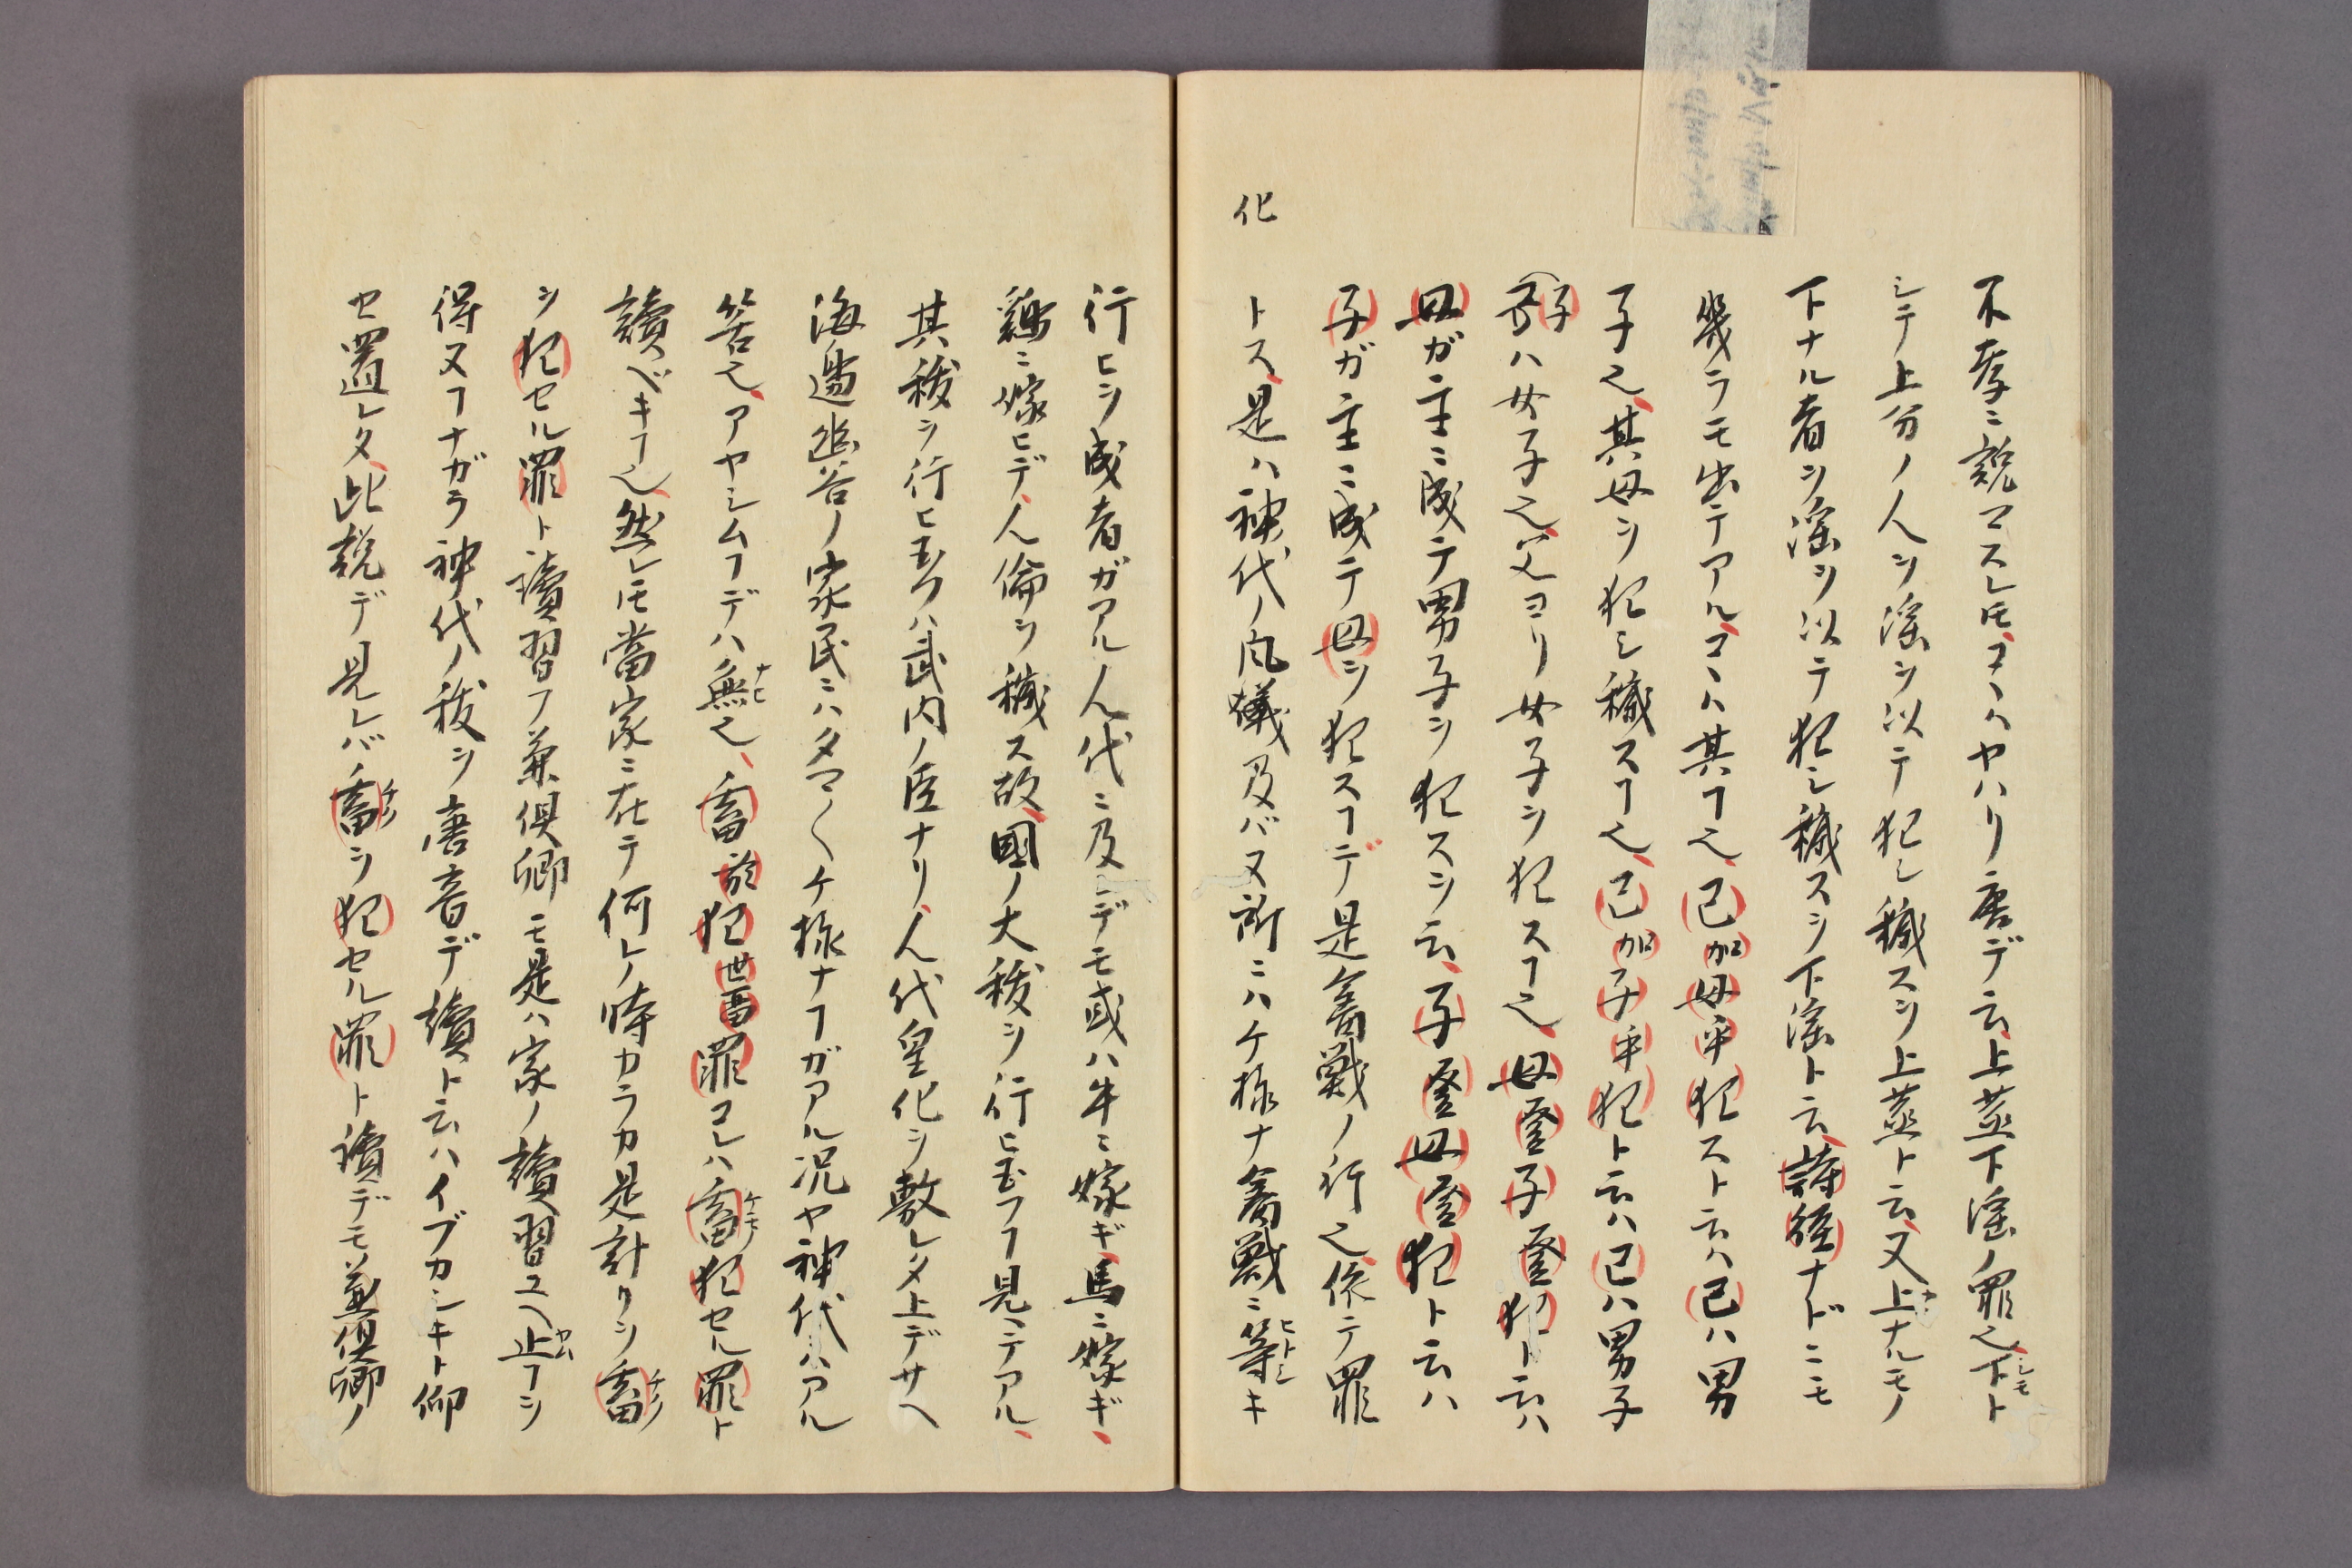 不孝ニ説マスレ𪜈、コヽハヤハリ唐デ云上蒸下淫ノ罪也、下シモト
シテ上分ノ人ヲ淫ヲ以テ犯シ穢スヲ上蒸ト云、又上ナルモノ
下ナル者ヲ淫ヲ以テ犯シ穢スヲ下淫ト云、詩經ナドニモ
幾ラモ出テアル、コヽハ其ヿ也、己加母乎犯スト云ハ己ハ男
子也、其母ヲ犯シ穢スヿ也、己加子乎犯ト云ハ己ハ男子
子ハ女子也、父ヨリ女子ヲ犯スヿ也、母登子登犯ト云ハ
母ガ主ニ成テ男子ヲ犯スヲ云、子登母登犯ト云ハ
子ガ主ニ成テ母ヲ犯スヿデ是禽獸ノ行也、依テ罪
トス、是ハ神代ノ風儀及バヌ所ニハケ様ナ禽獸ニ等ヒトシキ
化
行ヒヲ成者ガアル、人代ニ及デモ或ハ牛ニ嫁ギ、馬ニ嫁ギ、
鶏ニ嫁ヒデ、人倫ヲ穢ス故、國ノ大秡ヲ行ヒ玉フヿ見ヘテアル、
其秡ヲ行ヒ玉フハ武内ノ臣ナリ、人代皇化ヲ敷レタ上デサヘ
海邊幽谷ノ家民ニハタマ〱ケ様ナヿガアル況ヤ神代ハアル
筈也、アヤシムヿデハ無ナヒ也、畜於犯世畄罪コレハ畜ケモノ犯セル罪ト
讀ベキヿ也、然レ𪜈當家ニ在テ何レノ時カラカ是計リヲ畜チク
ヲ犯セル罪ト讀習フ兼倶卿モ是ハ家ノ讀習ユヘ止ヤムヿヲ
得又ヿナガラ神代ノ秡ヲ唐音デ讀ト云ハイブカシキト仰
セ置レタ、此説デ見レバ畜チクヲ犯セル罪ト讀デモ兼倶卿ノ